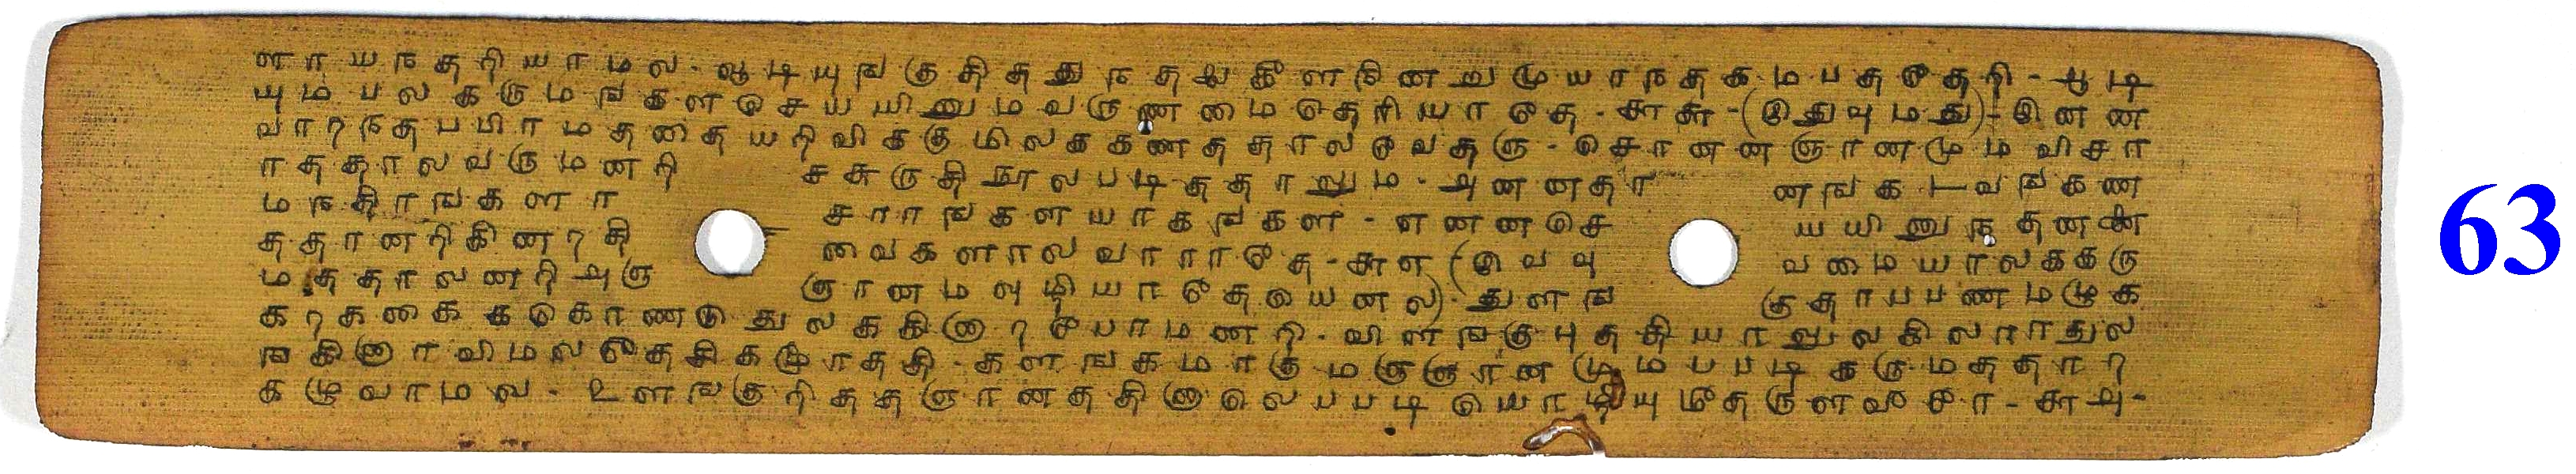 ளாயநதறியாமல - ஆடியுஙகுதிததுநதஙகீளநினறுமுயாநதகமபததேறி - ஆடி
யும பலகருமஙகளசெயயினுமவருணமைதெரியாதே - சுசு - (இதுவுமது) - இனன
வாறநதபபிரமததையறிவிககுமிலககணததாலேவதரு - சொனனஞானமுமவிசா
ரததாலவருமனறி சசுருதிநூலபடிததாலும - அனனதா னஙக டவஙகண
மநதிரஙகளா சாரஙகளயாகஙகள - எனனசெ யயினுநதனணி
ததானறிகினறதி வைகளாலவாராதே - சுள (இவவு வமையாலககரு
மததாலனறிஅரு ஞானமவழியாதேயெனல) - துளங குதாபபணமழுக
கறகைககொணடுதுலககினறபோமனறி - விளஙகுபுததியாலுலகிலாராதுல
ஙகினாரவிமலவேதகிகழாததி - களஙகமாகுமஞஞானமுமபபடிகருமததாற
கழுவாமல - உளஙகுறிததஞானததினாலெபபடியொழியுமீதருளவீரே - சுஅ -